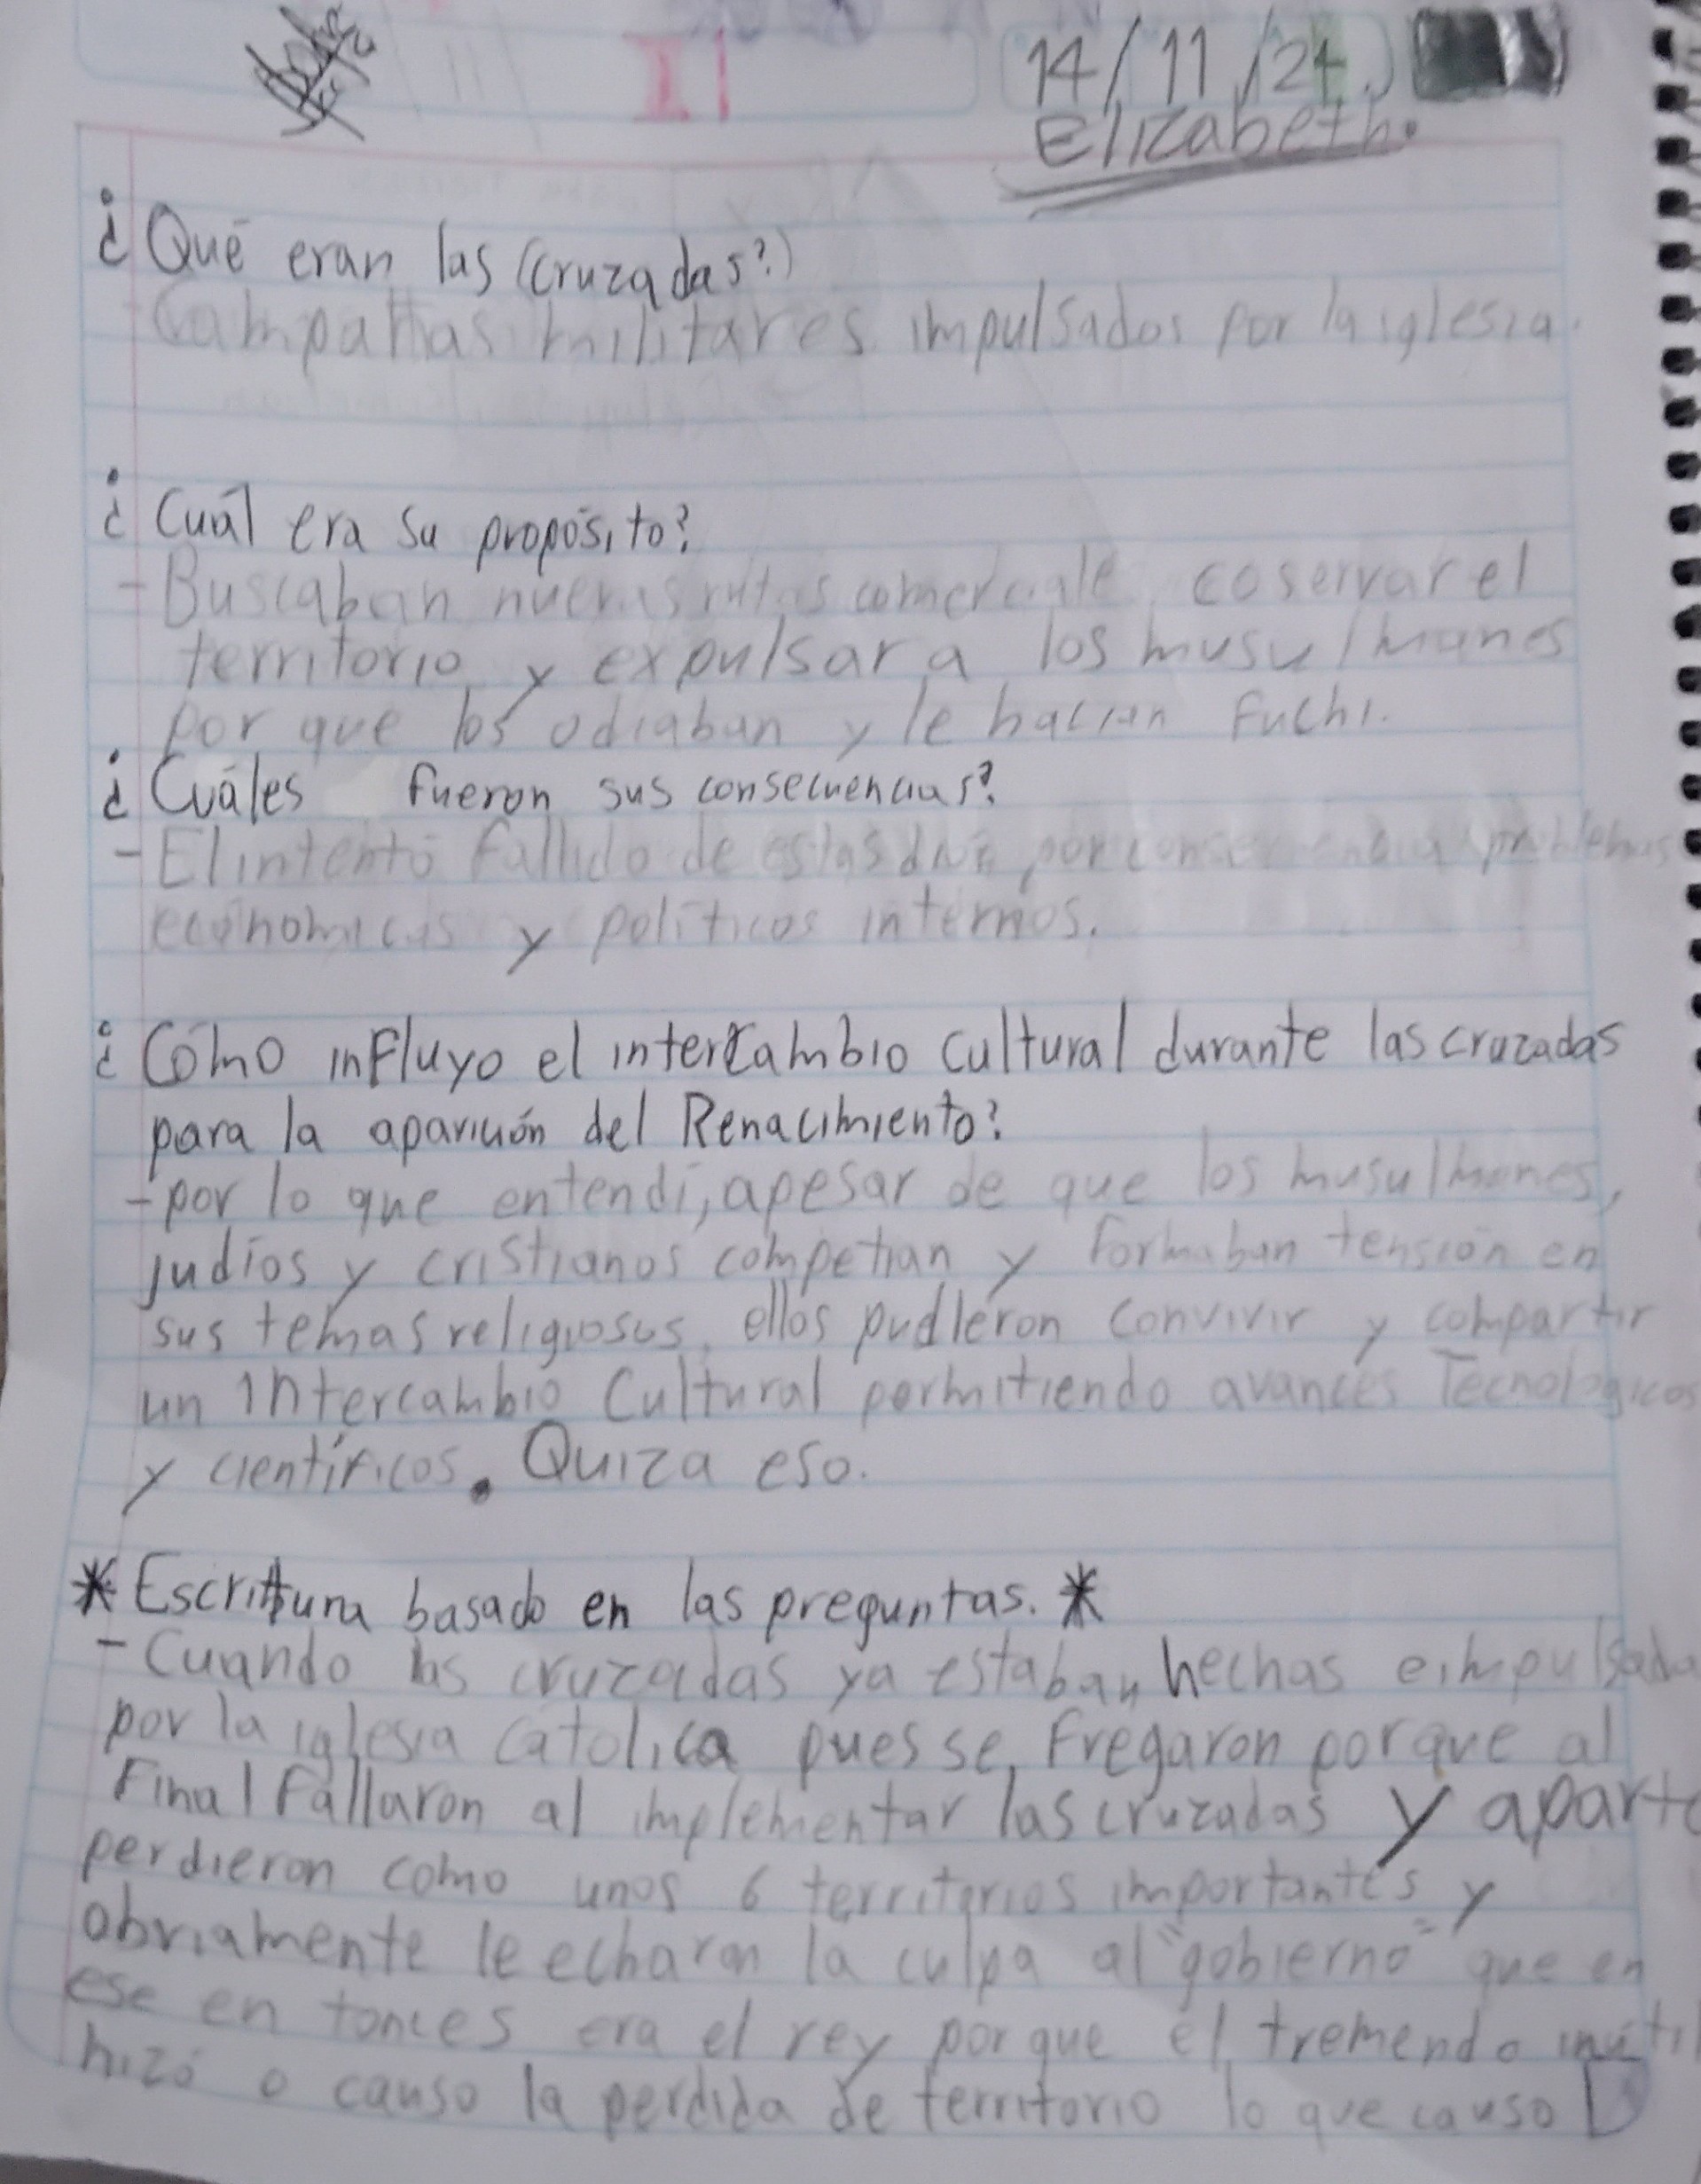 14/11/24.
Elizabeth.
¿Qué eran las (cruzadas?)
-Campañas militares impulsados por la iglesia.
¿Cuál era su propósito?
-Buscaban nuevas rutas comerciale, coservar el
territorio y expulsar a los musulmanes
por que los odiaban y le hacian Fuchi.
¿Cuáles fueron sus consecuencias?
-El intento fallido de estas dió, por consecuencia problemas
económicos y políticos internos.
¿Cómo influyo el intercambio cultural durante las cruzadas
para la aparición del Renacimiento?
-por lo que entendí, apesar de que los musulmanes,
judíos y cristianos competian y formaban tensión en
sus temas religiosos, ellos pudieron convivir y compartir
un intercambio Cultural permitiendo avances Tecnologicos
y científicos. Quiza eso.
*Escritura basado en las preguntas.*
-Cuando las cruzadas ya estaban hechas e impulsada
por la iglesia catolica pues se fregaron porque al
Final Fallaron al implementar las cruzadas y aparte
perdieron como unos 6 territorios importantes y
obviamente le echaron la culpa al "gobierno" que en
ese en tonces era el rey porque el tremendo inútil
hizo o causo la perdida de territorio lo que causo